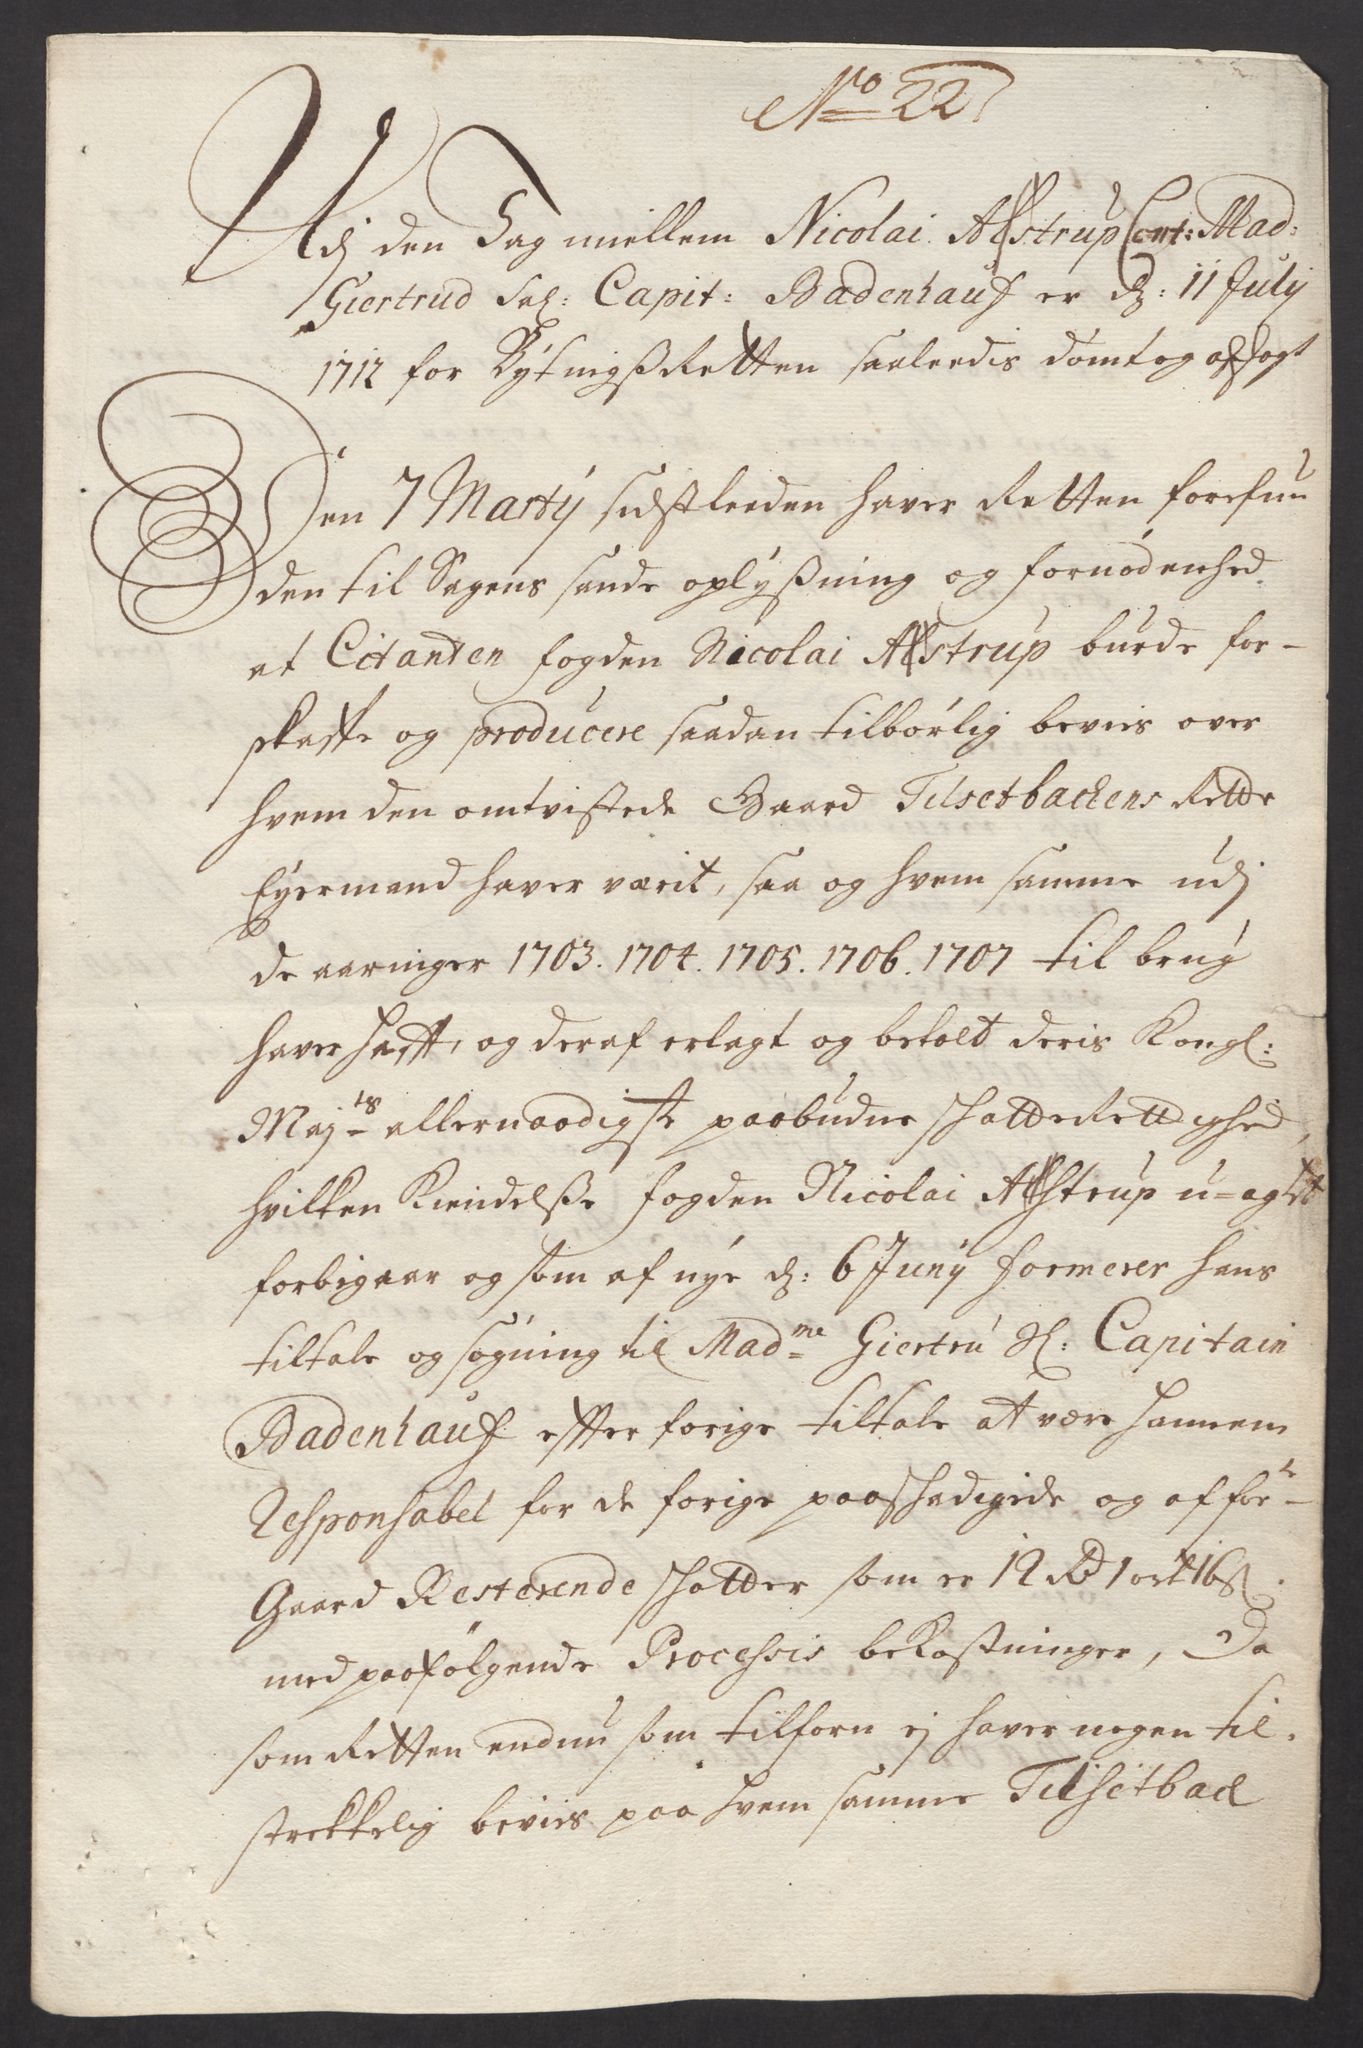 No 22
Udj den Sag mellem Nicolai Alstrup Cont: Mad:
Giertrud Sal: Capit: Badenhauß er d: 11 July
1712 for Bytingßretten saaleedis dömt og afsagt
Den 7 Marty sidstleeden haver Retten forefun
den til Sagens sande oplyßning og fornödenhed
at Citanten fogden Nicolai Alstrup burde for-
skaffe og producere saadan tilbörlig beviis over
hvem den omtvistede Gaard Tilsetbackens Rette
Eyermand haver værit, saa og hvem samme udj
de aaringer 1703. 1704. 1705. 1706. 1707 til brug
haver hafft, og deraf erlagt og betalt deris Kongl:
Maj:ts allernaadigste paabudne skatte Rettighed,
hvilken Kiendelße fogden Nicolai Alstrup u-agtet
forbigaar og som af nye d: 6 Juny formerer hans
tiltale og sögning til Madme Giertru Sl: Capitain
Badenhauß effter forige tiltale at være hannem
Responsabel for de forige paastædigede og af for-
Gaard Resterende skatter som er 12 Rd 1 ort 16 ß.
med paafölgende Processis bekostninger, Da
som Retten endnu som tilforn ej haver nogen til-
strekkelig beviis paa hvem samme Tilsetbach